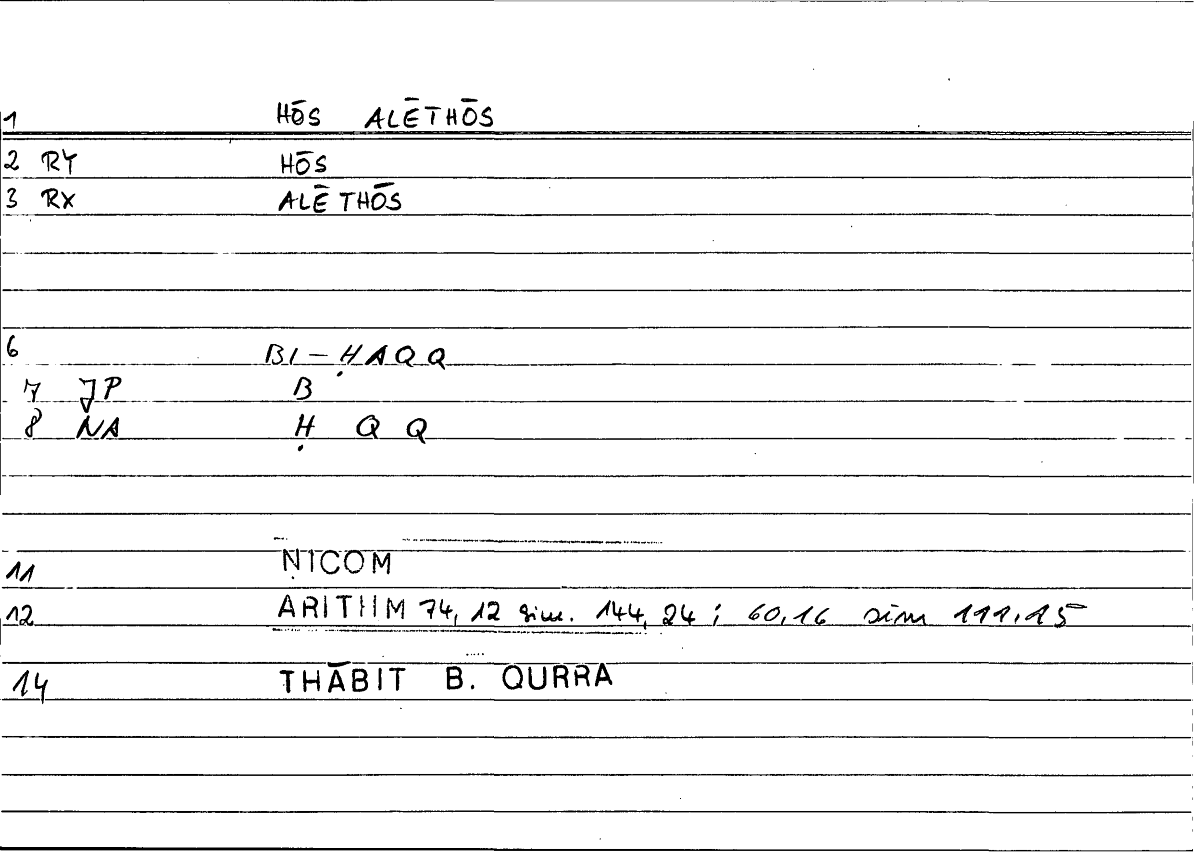 1 HŌS ALĒTHŌS
2 RY HŌS
3 RX ALĒTHŌS
6 BI-ḤAQQ
7 JP B
8 NA Ḥ Q Q
11 NICOM
12 ARITHM 74,12 sim. 144,24; 60,16 sim 111,15
14 THĀBIT B. QURRA